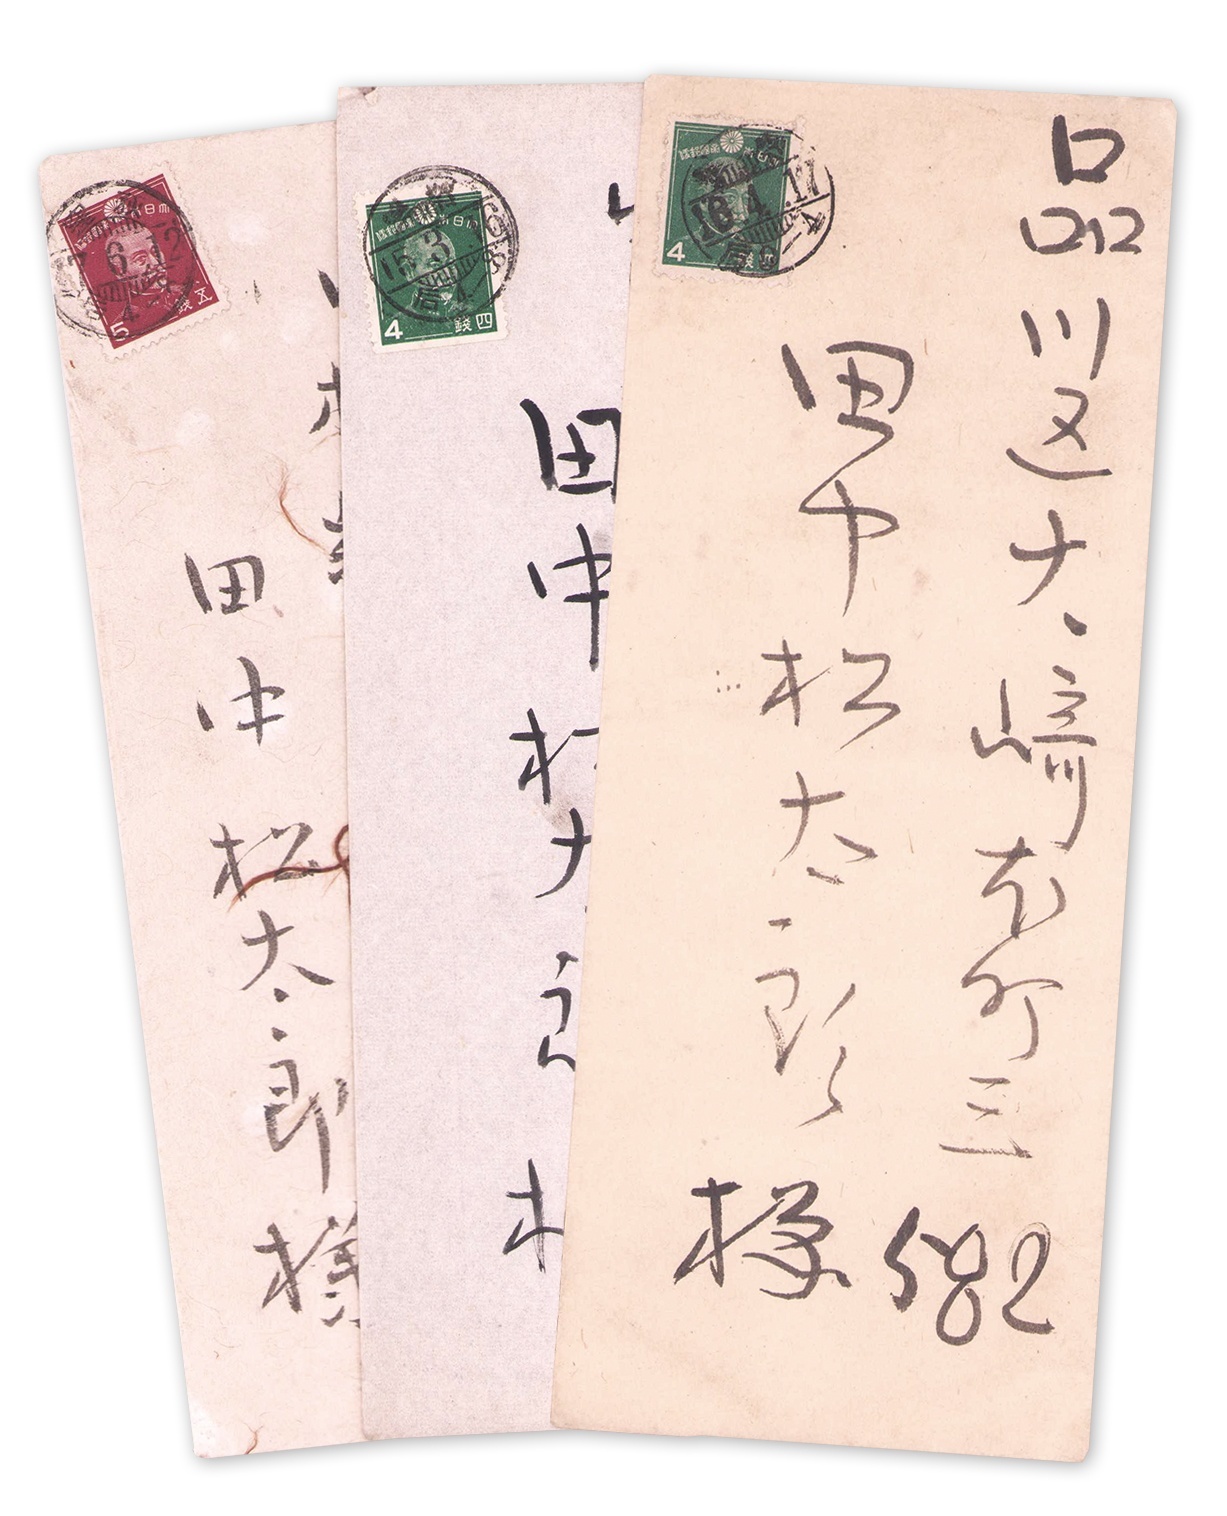 品川区大崎本町三
582
田中松太郎
様
田中
松太郎
様
田中
大日本帝國郵便
4
四銭
16.4.17
大日本帝國郵便
4
四銭
15.3.
大日本帝國郵便
5
五銭
6.12